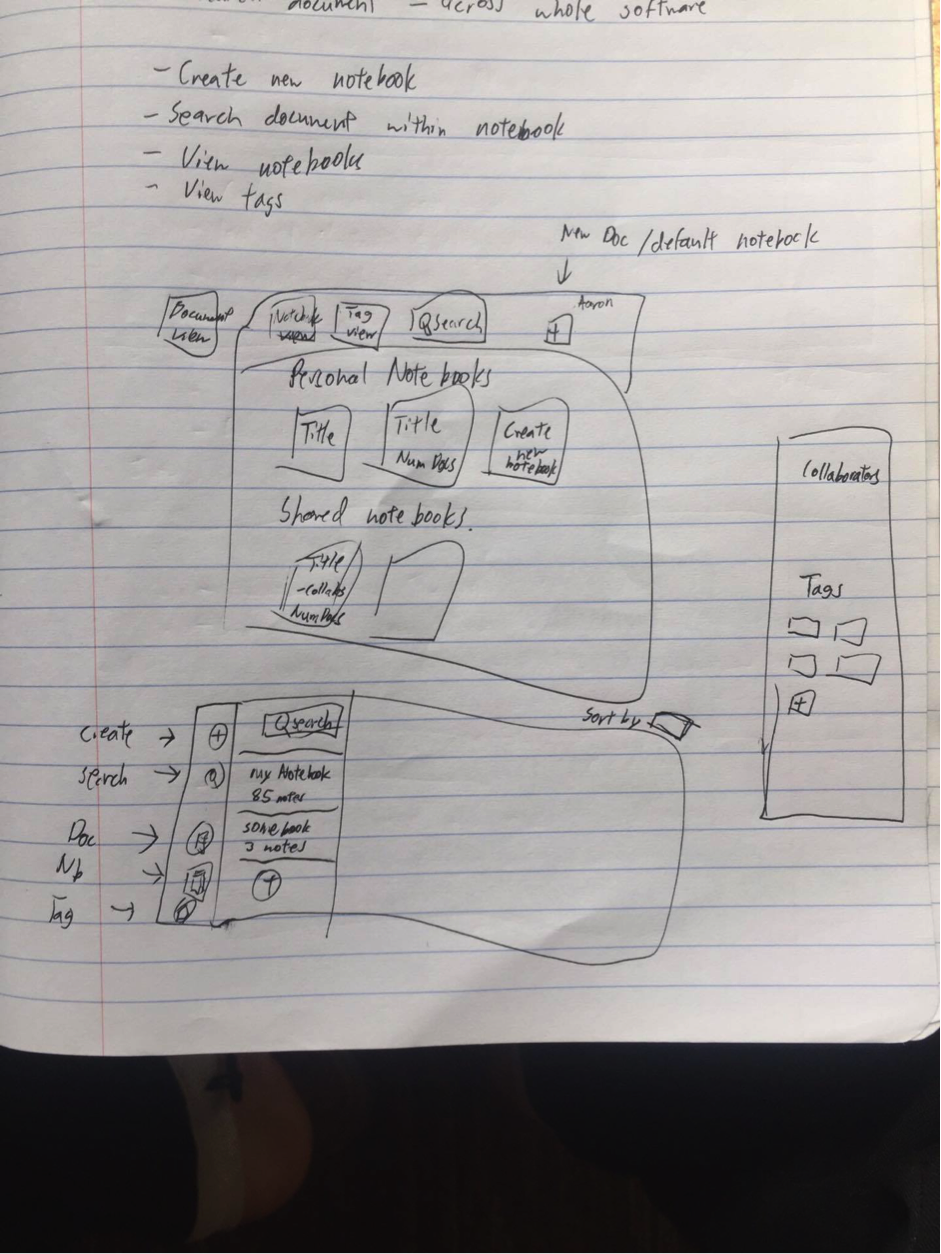 document - across whole software
- Create new notebook
- Search document within notebook
- View notebooks
- View tags
New Doc / default notebook
Document view
Notebook view
Tag view
Qsearch
+
Aaron
Personal Note books
Title
Title
Num Docs
Create new notebook
Shared note books.
Title
- Collabs
Num Docs
Collaborators
Tags
+
Sort by
Create →
+
Qsearch
Serch →
Q
my Notebook
85 notes
Doc →
somebook
3 notes
Nb →
+
Tag →